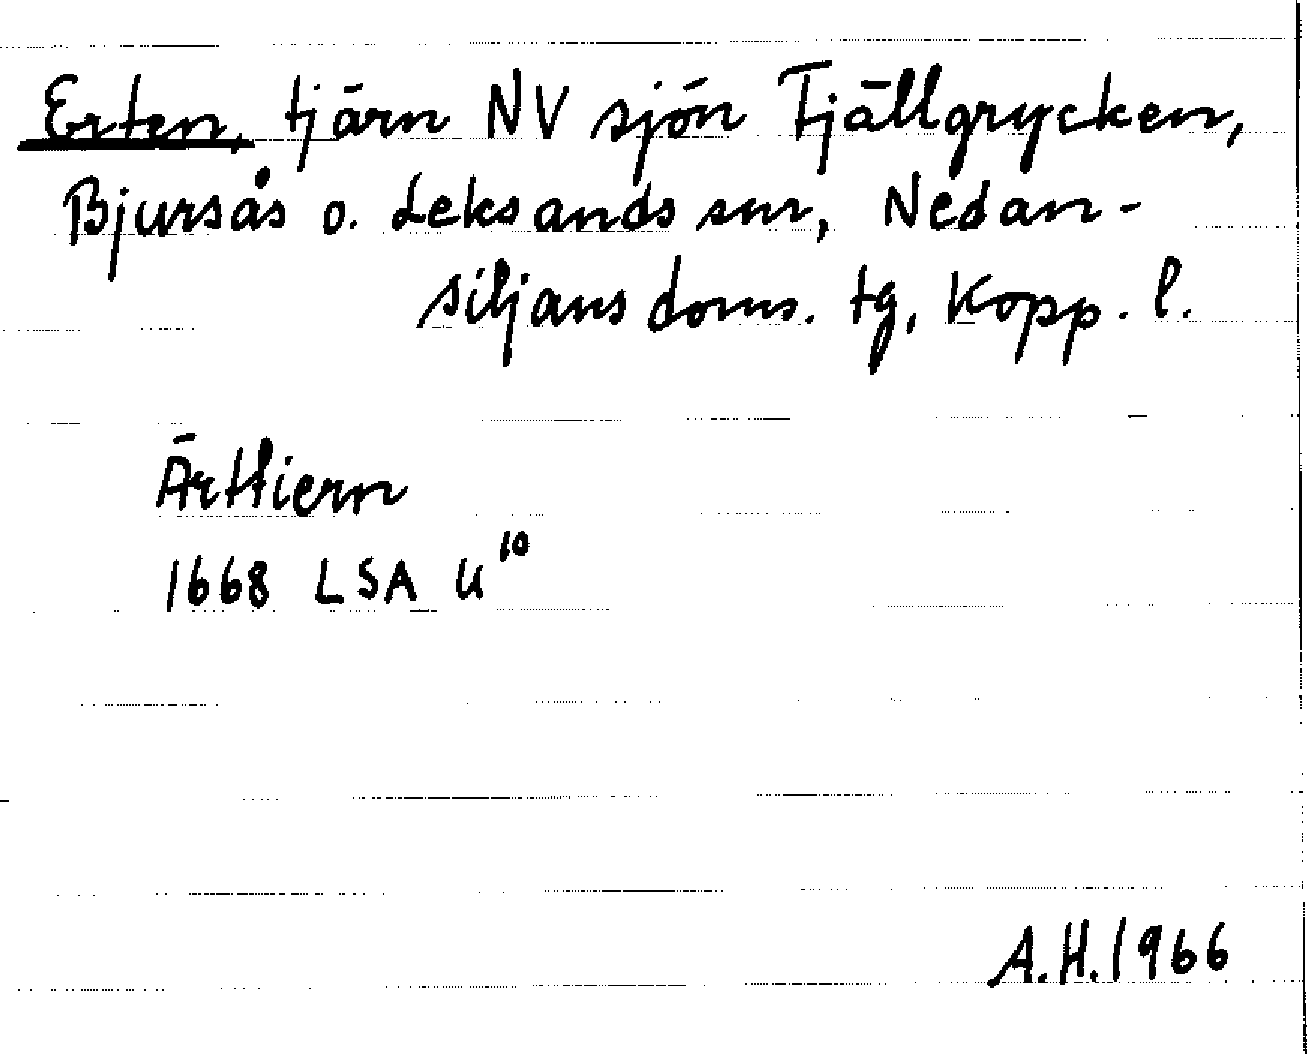 Erten, tjärn NV sjön Fjällgrycken,
Bjursås o. Leksands snr, Nedan-
siljans doms. tg, Kopp. l.
Ärttiern
1668 LSA U¹⁰
A.H. 1966